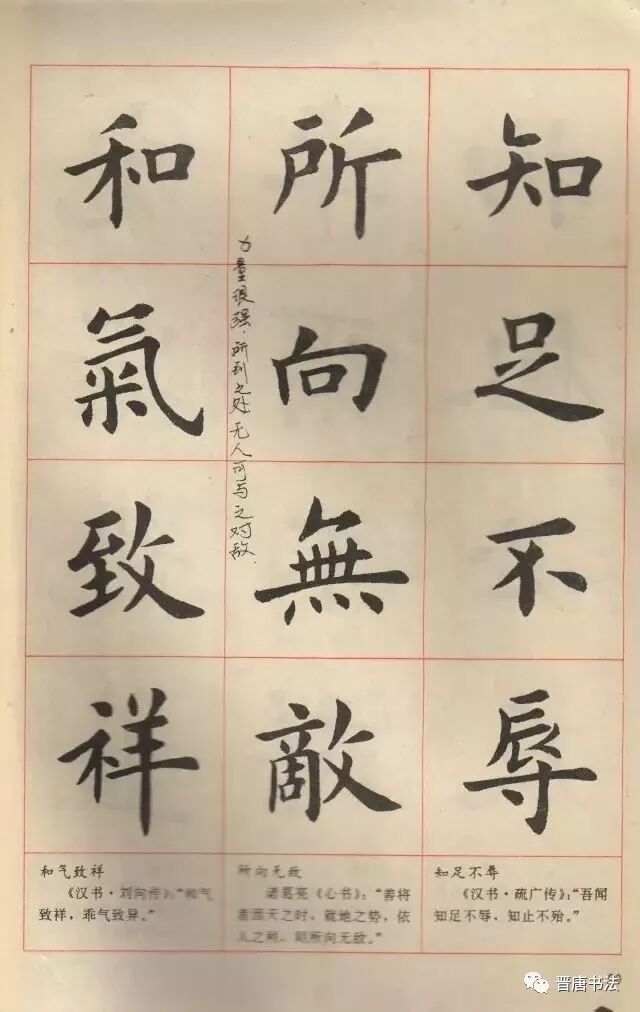 知足不辱
所向無敵
力量很强.所到之处.无人可与之对敌.
和氣致祥
和气致祥
《汉书·刘向传》:“和气
致祥,乖气致异。”
所向无敌
诸葛亮《心书》:“善将
者因天之时,就地之势,依
人之利,则所向无敌。”
知足不辱
《汉书·疏广传》:“吾闻
知足不辱,知止不殆。”
晋唐书法